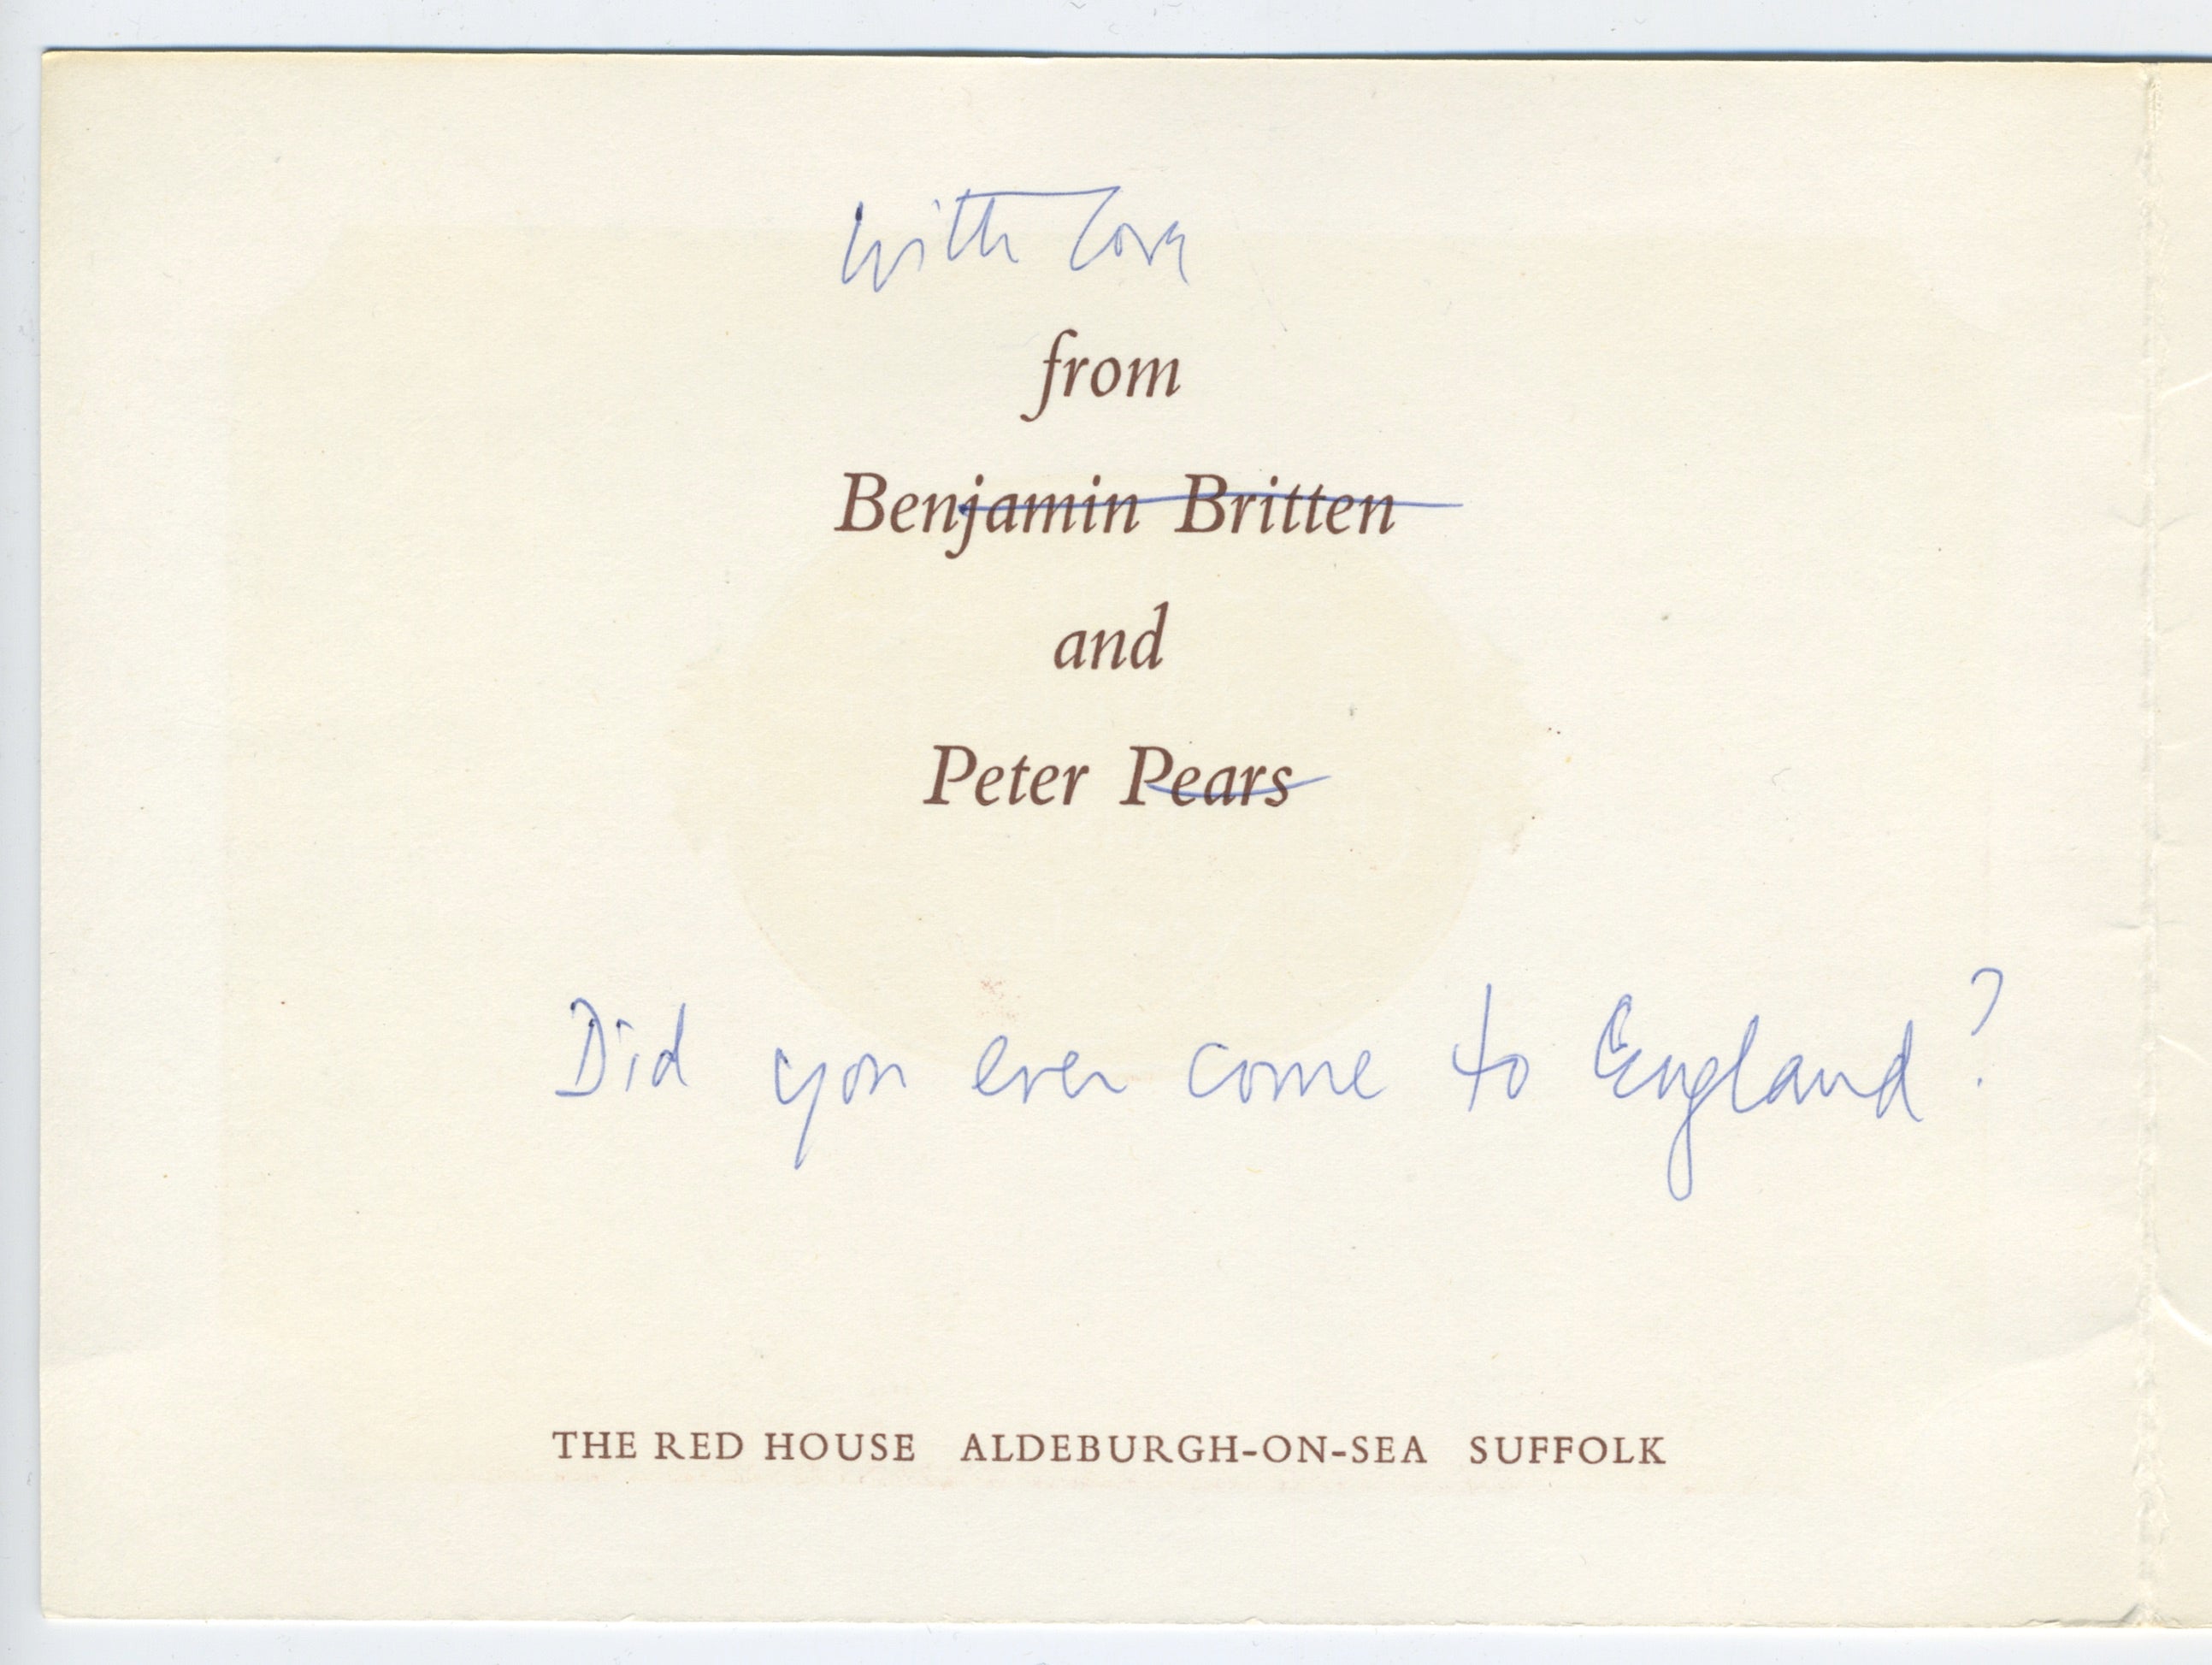 with love
from
Benjamin Britten
and
Peter Pears
Did you ever come to England?
THE RED HOUSE ALDEBURGH-ON-SEA SUFFOLK